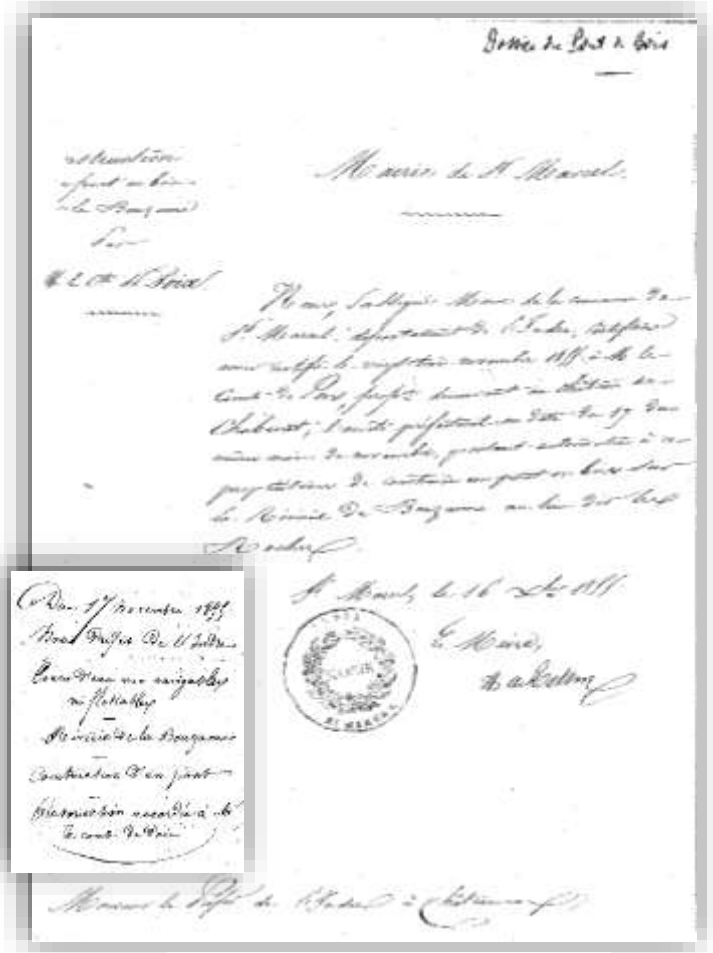 Dossier du Pont de bois
Mairie de St Marcel.
pont en bois
la Bouzanne
Par
M. le Cte de Poix
Nous, Maire de la commune de
St Marcel, département de l'Indre, certifions
avoir notifié le vingt trois novembre 1855 à M. le
Comte de Poix, demeurant au château de
Chabenet, l'arrêté préfectoral en date du 17 du
même mois de novembre, portant autorisation à ce
propriétaire de construire un pont en bois sur
la Rivière de Bouzanne au lieu dit les
Rochers.
St Marcel, le 16 Xbre 1855
Le Maire,
Du 17 novembre 1855
Nous Préfet de l'Indre
Cours d'eau non navigables
ni flottables
Rivière de la Bouzanne
Construction d'un pont
Autorisation accordée à Mr
le comte de Poix
Monsieur le Préfet de l'Indre à Châteauroux